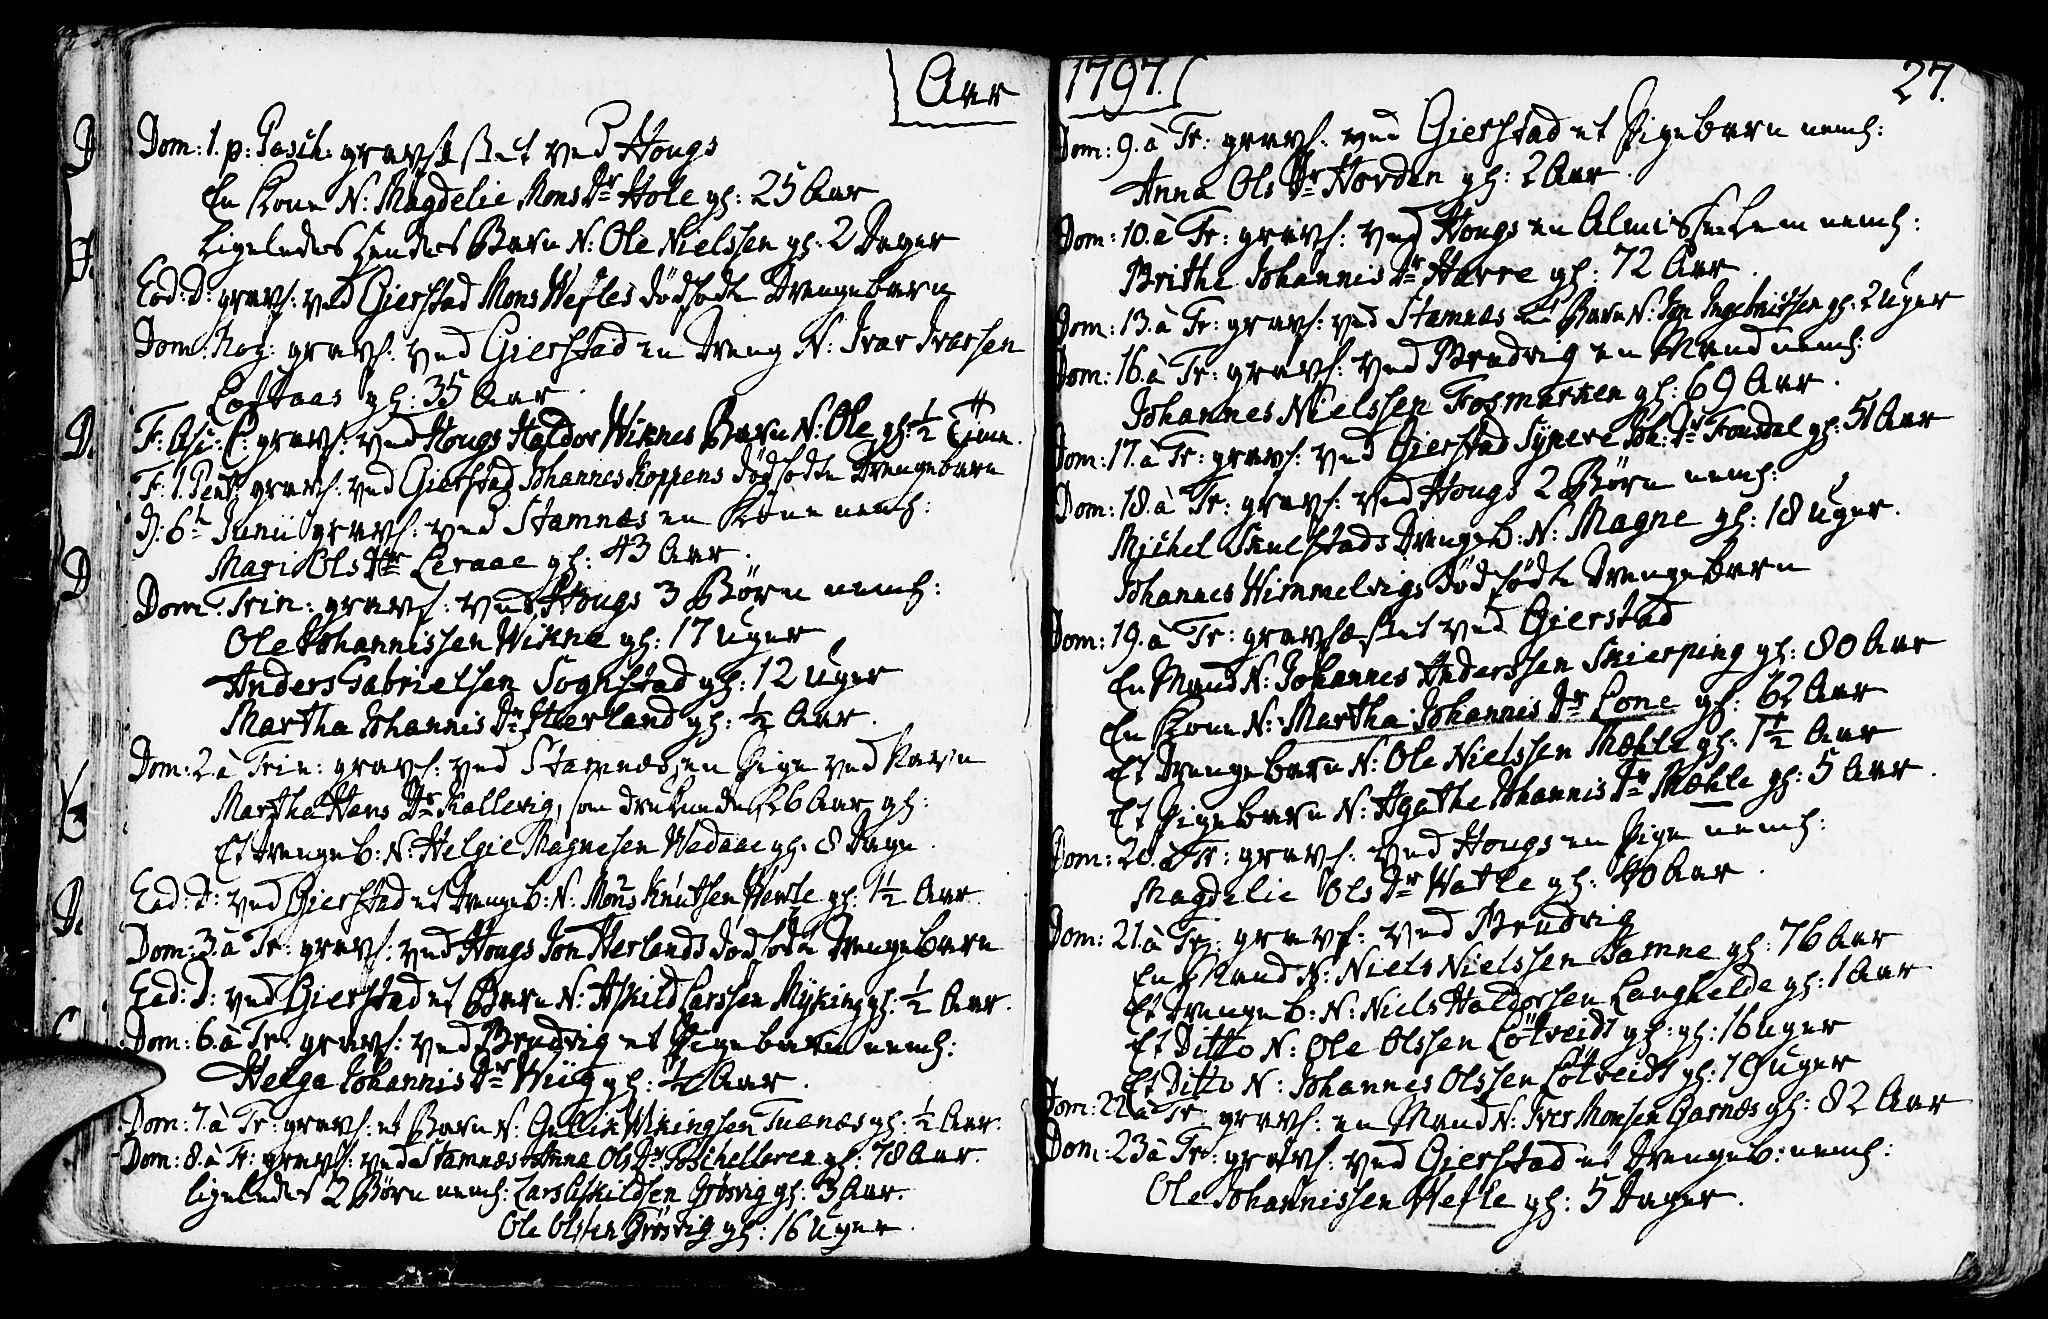 Aar
Dom: 1. p: Pasch: gravsat ved Hougs
En Kone N: Magdelie Mons Dr Hole gl: 25 Aar
Ligeledes hendes Barn N: Ole Nielssen gl: 2 Dager
Eod: D: gravs: ved Gierstad Mons Wefles dødfødte Drengebarn
Dom: Rog: gravs: ved Gierstad en Dreng N: Ivar Ivarsen
Loftaas gl: 35 Aar.
F: Asc: C: gravs: ved Hougs Haldor Wiknes Barn N: Ole gl: ½ Time.
F: 1. Pent: gravs: ved Gierstad Johannes Koppens dødfødte Drengebarn
D: 6te Junii gravs: ved Stamnæs en Kone neml:
Mari Ols Dtr Leraae gl: 43 Aar.
Dom: Trin: gravs: ved Hougs 3 Børn neml:
Ole Johannissen Wikne gl: 17 Uger
Anders Gabrielsen Sognstad gl: 12 Uger
Martha Johannis Dr Herland gl: ½ Aar.
Dom: 2. à Trin: gravs: ved Stamnæs en Pige ved Navn
Martha Hans Dr Kallevig, som druknede 26 Aar gl:
Et Drengeb: N: Helgie Magnesen Wadaae gl: 8 Dage.
Eod: D: ved Gierstad et Drengeb: N: Mons Knutsen gl: 1½ Aar.
Dom: 3. à Tr: gravs: ved Hougs Jon Herlands dødfødte Drengebarn
Eod: D: ved Gierstad et Barn N: Askild Larssen Myking gl: ½ Aar.
Dom: 6. à Tr: gravs: ved Brudvig et Pigebarn neml:
Helga Johannis Dr Wiig gl: ½ Aar.
Dom: 7. à Tr: gravs: et Barn N: Gullik Wikingsen Tuenæs gl: ½ Aar.
Dom: 8. à Tr: gravs: ved Stamnæs Anna Ols Dr gl: 78 Aar.
ligeledes 2 Børn neml: Lars Askildsen Grøsvig gl: 3 Aar.
Ole Olssen Grøsvig gl: 16 Uger.
1797.
27.
Dom: 9. à Tr: gravs: ved Gierstad et Pigebarn neml:
Anna Ols Dr Horden gl: 2 Aar.
Dom: 10. à Tr: gravs: ved Hougs en Almisselem neml:
Brithe Johannis Dr Harre gl: 72 Aar.
Dom: 13. à Tr: gravs: ved Stamnæs et Barn N: Jon Ingebrictsen gl: 2 Uger
Dom: 16. à Tr: gravs: ved Brudvig en Mand neml:
Johannes Nielssen Fosmarken gl: 69 Aar.
Dom: 17. à Tr: gravs: ved Gierstad Syneve Joh: Dr Fonsdal gl: 51 Aar
Dom: 18. à Tr: gravs: ved Hougs 2 Børn neml:
Michel Skulstads Drengeb: N: Magne gl: 18 Uger.
Johannes Himmelvigs dødfødte Drengebarn
Dom: 19. à Tr: gravsat ved Gierstad
En Mand N: Johannes Anderssen Skierping gl: 80 Aar
En Kone N: Martha Johannis Dr Lone gl: 62 Aar
Et Drengebarn N: Ole Nielssen Mæhle gl: 1½ Aar
Et Pigebarn N: Agathe Johannis Dr Mæhle gl: 5 Aar.
Dom: 20. à Tr: gravs: ved Hougs en Pige neml:
Magdelie Ols Dr Watle gl: 40 Aar.
Dom: 21. à Tr: gravs: ved Brudvig
En Mand N: Niels Nielssen Tamne gl: 76 Aar
Et Drengeb: N: Niels Haldorsen Langhelde gl: 1 Aar
Et Ditto N: Ole Olssen Løtveidt gl: gl: 16 Uger
Et Ditto N: Johannes Olssen Løtveidt gl: 16 Uger
Dom: 22 à Tr: gravs: en Mand N: Iver Monsen Garnæs gl: 82 Aar
Dom: 23 à Tr: gravs: ved Gierstad et Drengeb: neml:
Ole Johannissen Hefle gl: 5 Dager.